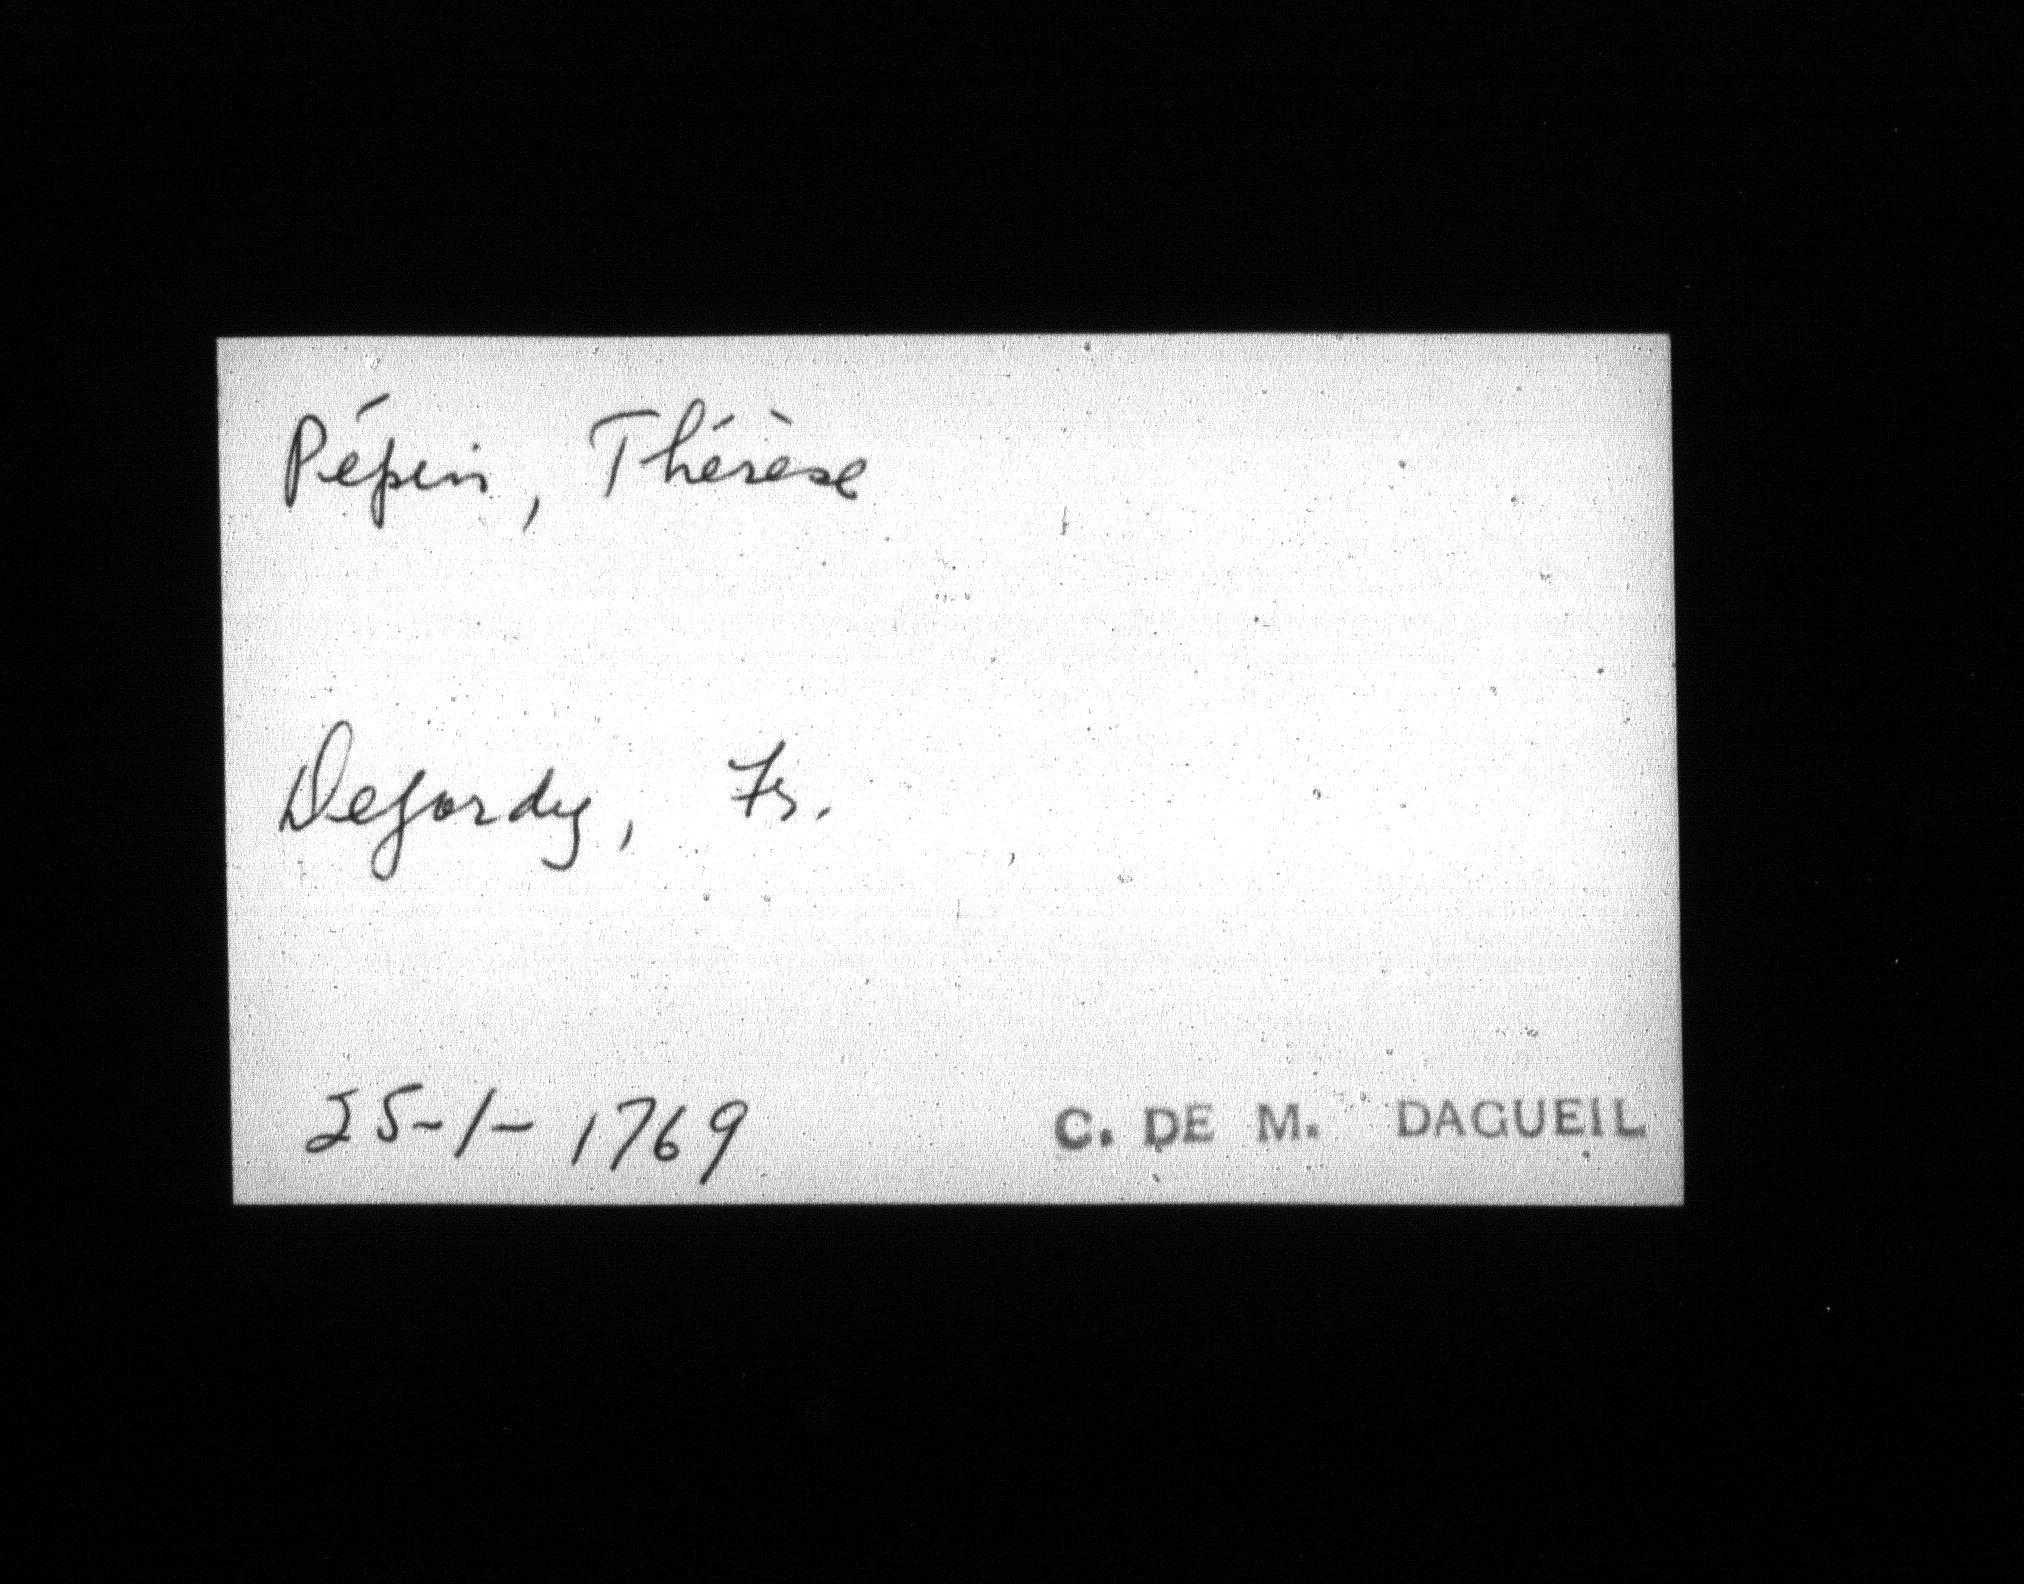 Pépin, Thérèse
Dejordy, Fs.
25-1-1769
C. DE M. DAGUEIL